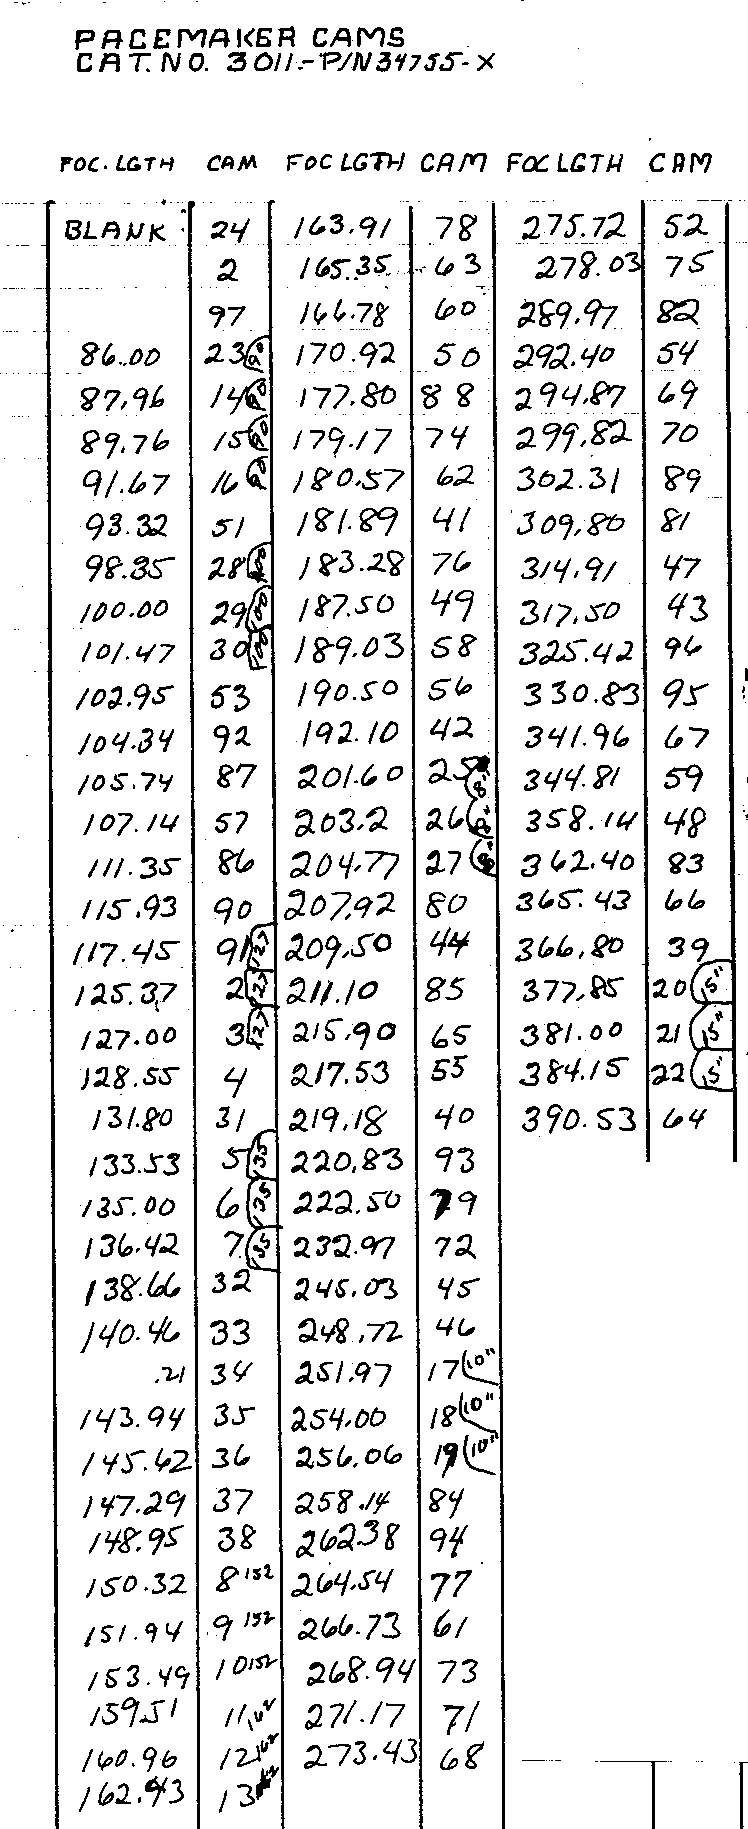 PACEMAKER CAMS
CAT. NO. 3011.-P/N34755-X
FOC. LGTH CAM FOC LGTH CAM FOC LGTH CAM
BLANK 24 163.91 78 275.72 52
2 165.35 63 278.03 75
97 166.78 60 289.97 82
86.00 23 90 170.92 50 292.40 54
87.96 14 90 177.80 88 294.87 69
89.76 15 90 179.17 74 299.82 70
91.67 16 90 180.57 62 302.31 89
93.32 51 181.89 41 309.80 81
98.35 28 100 183.28 76 314.91 47
100.00 29 100 187.50 49 317.50 43
101.47 30 100 189.03 58 325.42 96
102.95 53 190.50 56 330.83 95
104.34 92 192.10 42 341.96 67
105.74 87 201.60 25 8" 344.81 59
107.14 57 203.2 26 8" 358.14 48
111.35 86 204.77 27 8" 362.40 83
115.93 90 207.92 80 365.43 66
117.45 91 209.50 44 366.80 39
125.37 2 127 211.10 85 377.85 20 15"
127.00 3 127 215.90 65 381.00 21 15"
128.55 4 217.53 55 384.15 22 15"
131.80 31 219.18 40 390.53 64
133.53 5 135 220.83 93
135.00 6 135 222.50 79
136.42 7 135 232.97 72
138.66 32 245.03 45
140.46 33 248.72 46
.21 34 251.97 17 10"
143.94 35 254.00 18 10"
145.62 36 256.06 19 10"
147.29 37 258.14 84
148.95 38 262.38 94
150.32 8 152 264.54 77
151.94 9 152 266.73 61
153.49 10 152 268.94 73
159.51 11 162 271.17 71
160.96 12 162 273.43 68
162.43 13 162